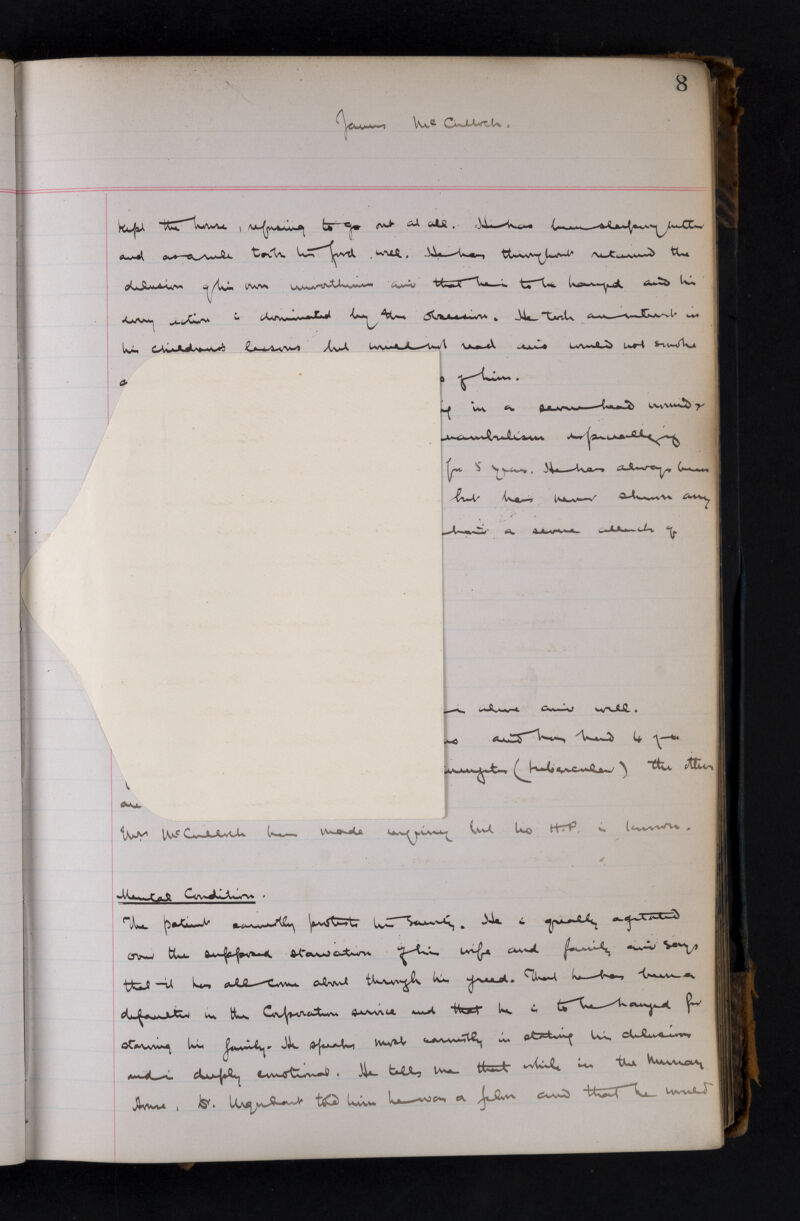 8
James McCulloch.
kept the house, refusing to go out at all. He has been sleeping better
and as a rule took his food well. He has throughout retained the
delusion of his own unworthiness and that he is to be hanged and his
every action is dominated by this obsession. He took an interest in
his children's lessons but would not read and would not smoke
of him.
in a severe head wound
especially if
for 5 years. He has always been
but has never shown any
a severe attack of
is alive and well.
and has had 4
(tubercular) the other
are
Mrs McCulloch has made enquiry but no H.P. is known.
Mental Condition.
The patient earnestly protests his sanity. He is greatly agitated
over the supposed starvation of his wife and family and says
that it has all come about through his greed. That he has been a
defaulter in the Corporation service and that he is to be hanged for
starving his family. He speaks most earnestly in stating his delusions
and is deeply emotional. He tells me that while in the Murray
House, Dr. Urquhart told him he was a felon and that he would